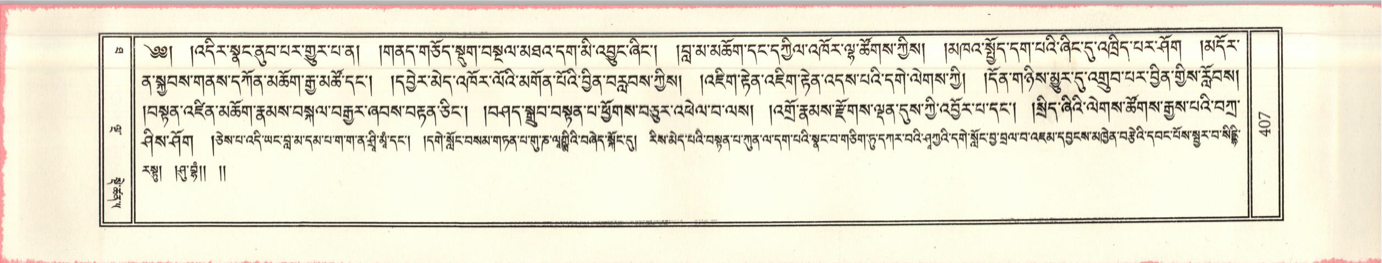 ༄༅། །འདིར་སྣང་ནུབ་པར་གྱུར་པ་ན། །གནད་གཅོད་སྡུག་བསྔལ་མཐའ་དག་མི་འབྱུང་ཞིང་། །བླ་མ་མཆོག་དང་དཀྱིལ་འཁོར་ལྷ་ཚོགས་ཀྱིས། །མཁའ་སྤྱོད་དག་པའི་ཞིང་དུ་འཁྲིད་པར་ཤོག །མདོར་
ན་སྐྱབས་གནས་དཀོན་མཆོག་རྒྱ་མཚོ་དང་། །དབྱེར་མེད་འཁོར་ལོའི་མགོན་པོའི་བྱིན་བརླབས་ཀྱིས། །འཇིག་རྟེན་འཇིག་རྟེན་འདས་པའི་དགེ་ལེགས་ཀྱི། །དོན་གཉིས་མྱུར་དུ་འགྲུབ་པར་བྱིན་གྱིས་རློབས།
།བསྟན་འཛིན་མཆོག་རྣམས་བསྐལ་བརྒྱར་ཞབས་བརྟན་ཅིང་། །བཤད་སྒྲུབ་བསྟན་པ་ཕྱོགས་བཅུར་འཕེལ་བ་ལས། །འགྲོ་རྣམས་རྫོགས་ལྡན་དུས་ཀྱི་འབྱོར་པ་དང་། །སྲིད་ཞིའི་ལེགས་ཚོགས་རྒྱས་པའི་བཀྲ་
ཤིས་ཤོག །ཅེས་པ་འདི་ཡང་བླ་མ་དམ་པ་ག་ག་ན་ དང་། །དགེ་སློང་བསམ་གཏན་པ་ བཞེད་སྐོང་དུ། རིས་མེད་པའི་བསྟན་པ་ཀུན་ལ་དག་པའི་སྣང་བ་གཅིག་ཏུ་དཀར་བའི་ཤཱཀྱའི་དགེ་སློང་བྱ་བྲལ་བ་འཇམ་དབྱངས་མཁྱེན་བརྩེའི་དབང་པོས་སྦྱར་བ་སིདྡྷི་
རསྟུ། །ཤུ་བྷཾ།། །།
407